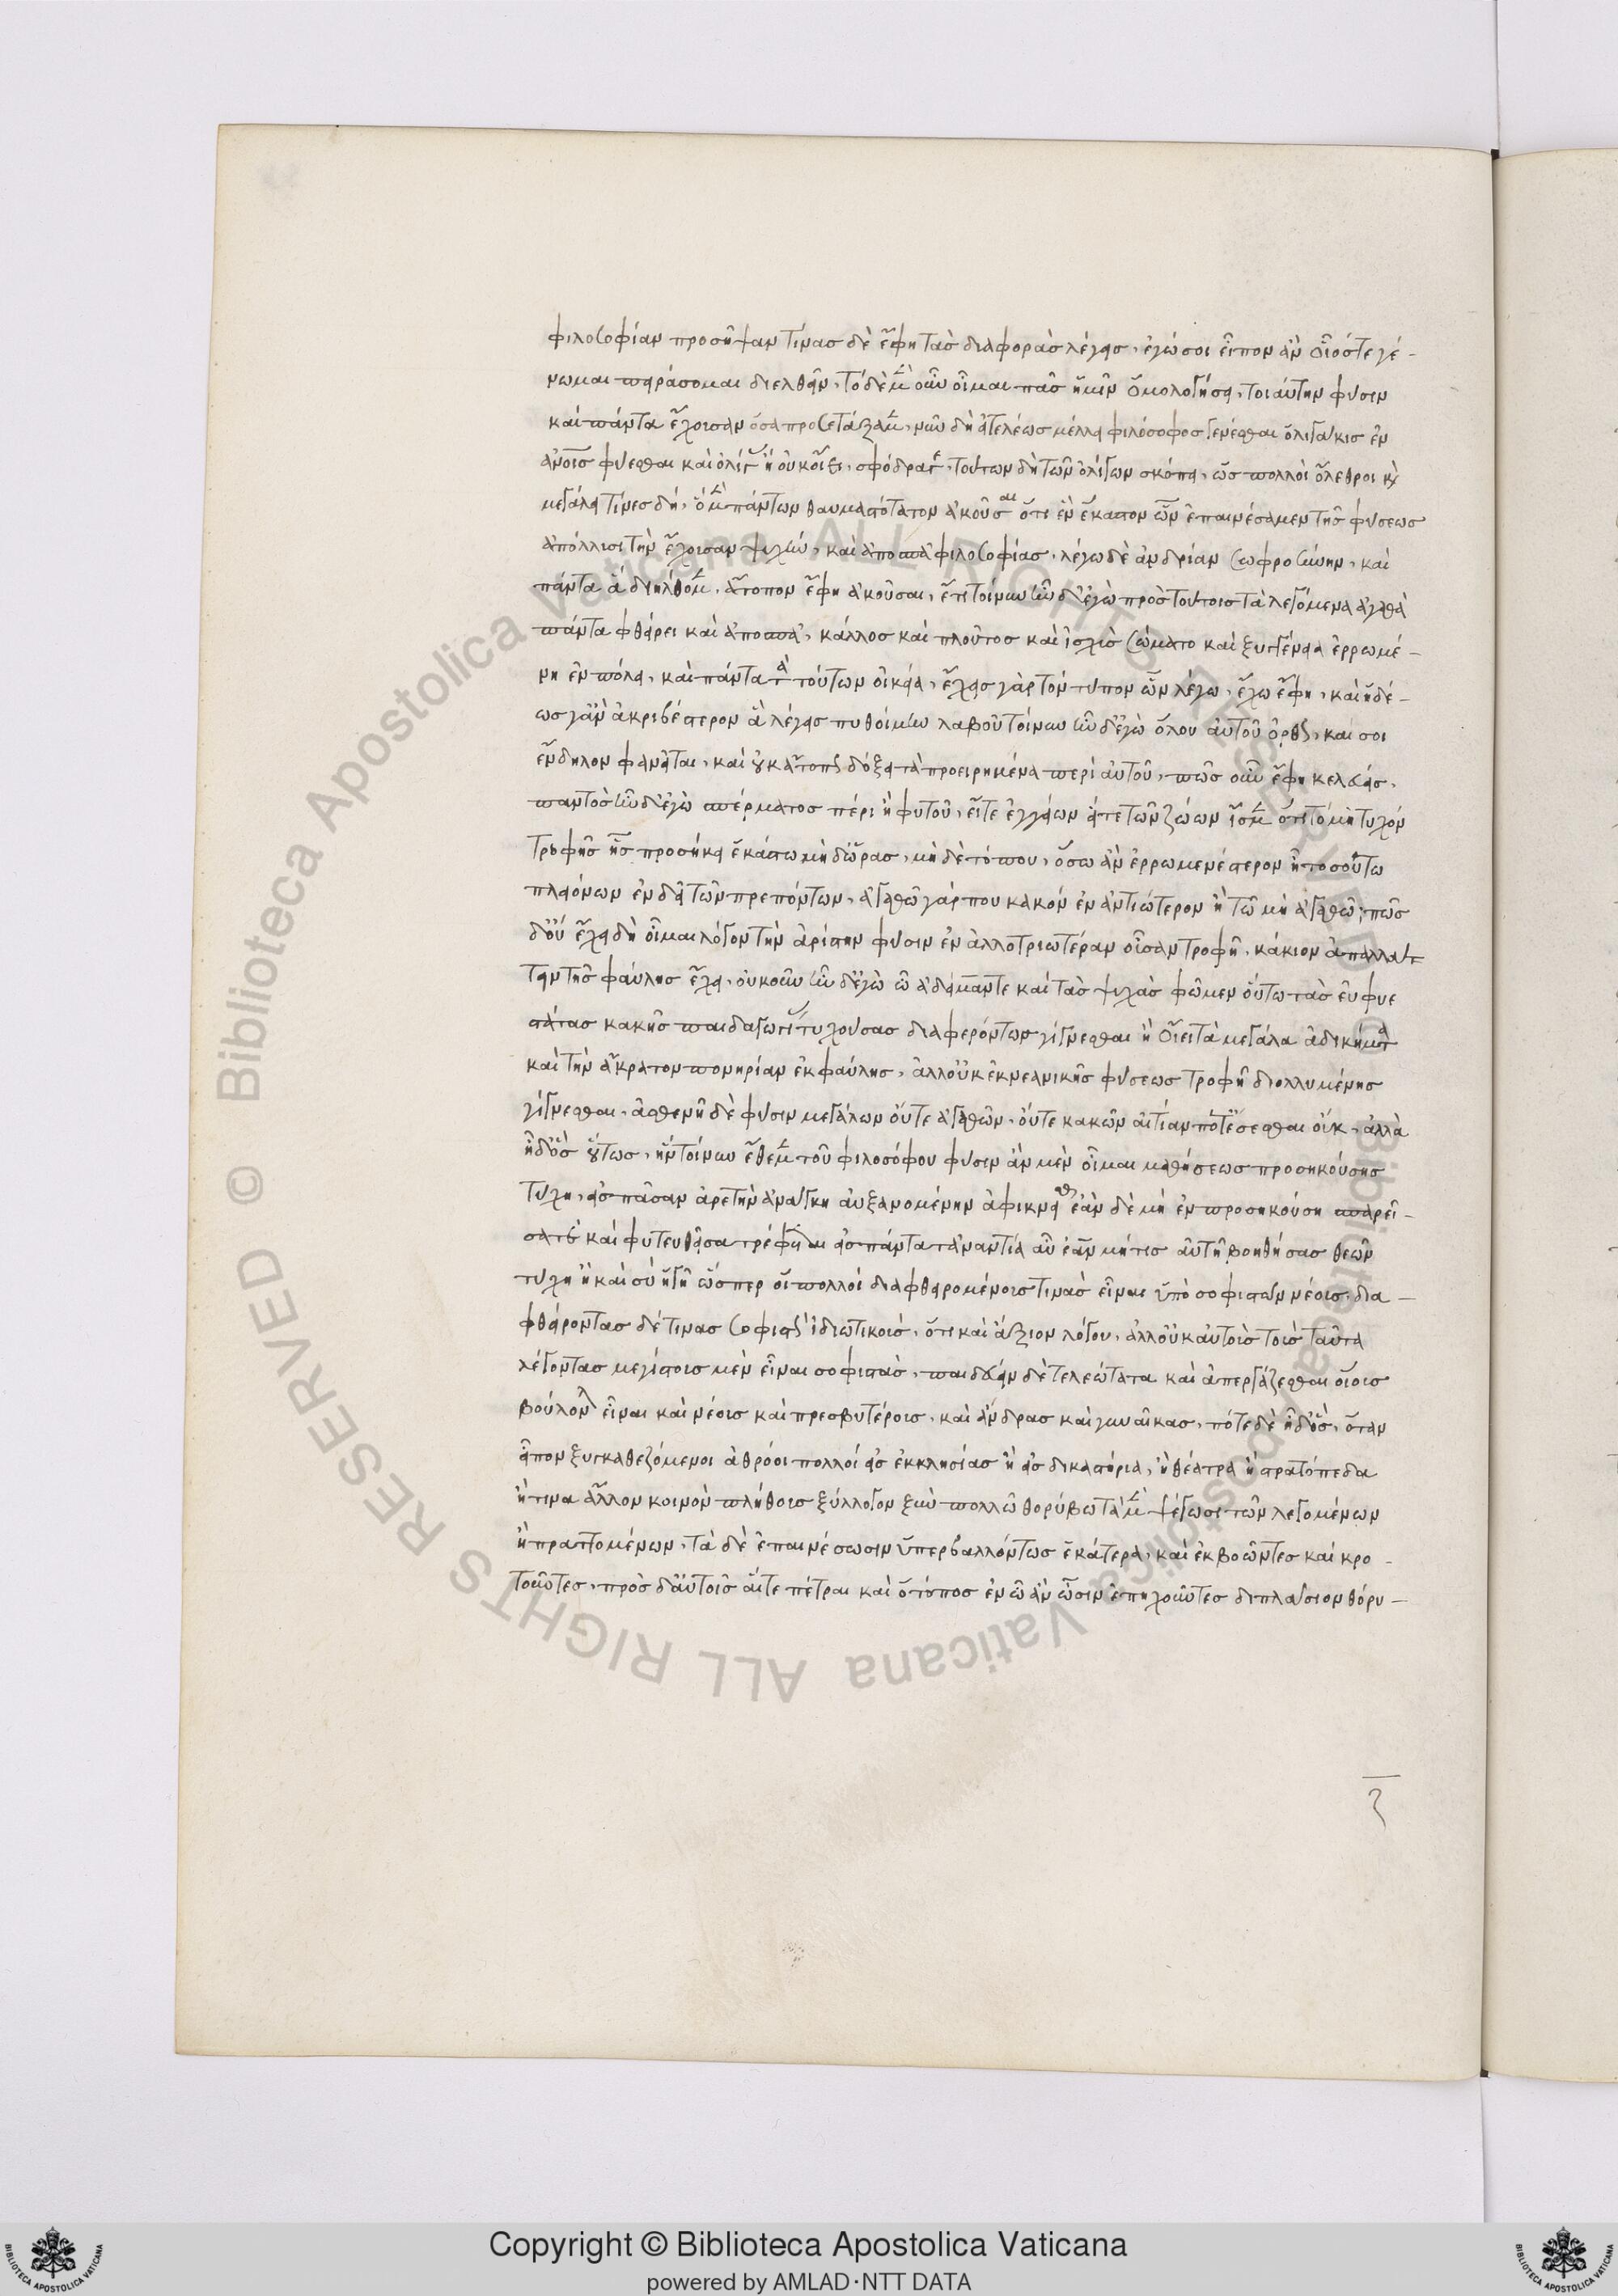 φιλοσοφίαν προσῆψαν τίνας δὲ ἔφη τὰς διαφορὰς λέγεις, ἐγώ σοι εἶπον ἂν οἷός τε γέ-
νωμαι πειράσομαι διελθεῖν, τόδε μὲν οὖν οἶμαι πᾶς ἡμῖν ὁμολογήσει, τοιαύτην φύσιν
καὶ πάντα ἔχουσαν ὅσα προσετάξαμεν, νῦν δὴ εἰ τελέως μέλλει φιλόσοφος γενέσθαι ὀλιγάκις ἐν
ἀνοις φύεσθαι καὶ ὀλίγας ἢ οὐκ οἴει, σφόδρα γε, τούτων δὴ τῶν ὀλίγων σκόπει, ὡς πολλοὶ ὄλεθροι καὶ
μεγάλοι τίνες δή, ὃ μὲν πάντων θαυμαστότατον ἀκοῦσαι ὅτι ἓν ἕκαστον ὧν ἐπαινέσαμεν τῆς φύσεως
ἀπόλλυσι τὴν ἔχουσαν ψυχήν, καὶ ἀποσπᾷ φιλοσοφίας, λέγω δὲ ἀνδρίαν σωφροσύνην, καὶ
πάντα ἃ διήλθομεν, ἄτοπον ἔφη ἀκοῦσαι, ἔτι τοίνυν ἦν δ' ἐγὼ πρὸς τούτοις τὰ λεγόμενα ἀγαθὰ
πάντα φθείρει καὶ ἀποσπᾷ, κάλλος καὶ πλοῦτος καὶ ἰσχὺς σώματος καὶ ξυγγένεια ἐρρωμέ-
νη ἐν πόλει, καὶ πάντα τὰ τούτων οἰκεῖα, ἔχεις γὰρ τὸν τύπον ὧν λέγω, ἔχω ἔφη, καὶ ἡδέ-
ως γ' ἂν ἀκριβέστερον ἃ λέγεις πυθοίμην λαβοῦ τοίνυν ἦν δ' ἐγὼ ὅλου αὐτοῦ ὀρθῶς, καί σοι
εὔδηλον φανεῖται, καὶ οὐκ ἄτοπα δόξει τὰ προειρημένα περὶ αὐτοῦ, πῶς οὖν ἔφη κελεύεις,
παντὸς ἦν δ' ἐγὼ σπέρματος πέρι ἢ φυτοῦ, εἴτε ἐγγείων εἴτε τῶν ζώων ἴσμεν ὅτι τὸ μὴ τυχὸν
τροφῆς ἧς προσήκει ἑκάστω μὴ δ' ὥρας, μὴ δὲ τόπου, ὅσω ἂν ἐρρωμενέστερον ἦ τοσούτω
πλειόνων ἐνδεῖ τῶν πρεπόντων, ἀγαθῶ γάρ που κακὸν ἐναντιώτερον ἢ τῶ μὴ ἀγαθῶ; πῶς
δ' οὔ ἔχει δὴ οἶμαι λόγον τὴν ἀρίστην φύσιν ἐν ἀλλοτριωτέρα οὖσαν τροφῇ, κάκιον ἀπαλλάτ
τειν τῆς φαύλης ἔχει, οὐκοῦν ἦν δ' ἐγὼ ὦ ἀδείμαντε καὶ τὰς ψυχὰς φῶμεν οὕτω τὰς εὐφυε
στάτας κακῆς παιδαγωγίας τυχούσας διαφερόντως γίγνεσθαι ἢ οἴει τὰ μεγάλα ἀδικήματα
καὶ τὴν ἄκρατον πονηρίαν ἐκ φαύλης, ἀλλ' οὐκ ἐκ νεανικῆς φύσεως τροφῇ διολλυμένης
γίγνεσθαι, ἀσθενῆ δὲ φύσιν μεγάλων οὔτε ἀγαθῶν, οὔτε κακῶν αἰτίαν ποτὲ ἔσεσθαι οὔκ, ἀλλὰ
ἦ δ' ὃς οὕτως, ἣν τοίνυν ἔθεμεν τοῦ φιλοσόφου φύσιν ἂν μὲν οἶμαι μαθήσεως προσηκούσης
τύχη, εἰς πᾶσαν ἀρετὴν ἀνάγκη αὐξανομένην ἀφικνεῖσθαι ἐὰν δὲ μὴ ἐν προσηκούση σπαρεῖ-
σά τε καὶ φυτευθεῖσα τρέφηται εἰς πάντα τἀναντία αὖ ἐὰν μή τις αὐτῇ βοηθήσας θεῶν
τύχη ἢ καὶ σὺ ἡγῇ ὥσπερ οἱ πολλοὶ διαφθειρομένους τινὰς εἶναι ὑπὸ σοφιστῶν νέους, δια-
φθείροντας δέ τινας σοφιστὰς ἰδιωτικούς, ὅτι καὶ ἄξιον λόγου, ἀλλ' οὐκ αὐτοὺς τοὺς ταῦτα
λέγοντας μεγίστους μὲν εἶναι σοφιστάς, παιδεύειν δὲ τελεώτατα καὶ ἀπεργάζεσθαι οἵους
βούλονται εἶναι καὶ νέους καὶ πρεσβυτέρους, καὶ ἄνδρας καὶ γυναῖκας, πότε δὲ ἦ δ' ὅς, ὅταν
εἶπον ξυγκαθεζόμενοι ἀθρόοι πολλοὶ εἰς ἐκκλησίας ἢ εἰς δικαστήρια, ἢ θέατρα ἢ στρατόπεδα
ἤ τινα ἄλλον κοινὸν πλήθους ξύλλογον ξὺν πολλῶ θορύβω τὰ μὲν ψέγωσι τῶν λεγομένων
ἢ πραττομένων, τὰ δὲ ἐπαινέσωσιν ὑπερβαλλόντως ἑκάτερα, καὶ ἐκβοῶντες καὶ κρο-
τοῦντες, πρὸς δ' αὐτοῖς αἵ τε πέτραι καὶ ὁ τόπος ἐν ὧ ἂν ὦσιν ἐπηχοῦντες διπλάσιον θόρυ-
© Biblioteca Apostolica Vaticana ALL RIGHTS RESERVED
Copyright © Biblioteca Apostolica Vaticana
powered by AMLAD·NTT DATA